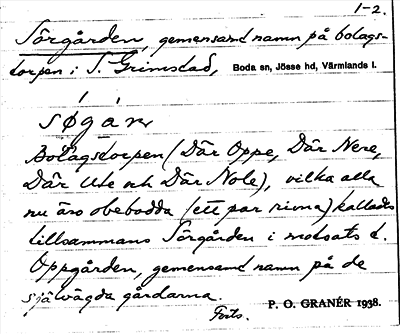 1-2.
Sörgården, gemensamt namn på bolags-
torpen i S. Grimstad, Boda sn, Jösse hd, Värmlands l.
søgár
Bolagstorpen (Där Oppe, Där Nere,
Där Ute och Där Nole), vilka alla
nu äro obebodda (ett par rivna) kallades
tillsammans Sörgården i motsats t.
Oppgården, gemensamt namn på de
självägda gårdarna.
Forts.
P. O. GRANÉR 1938.